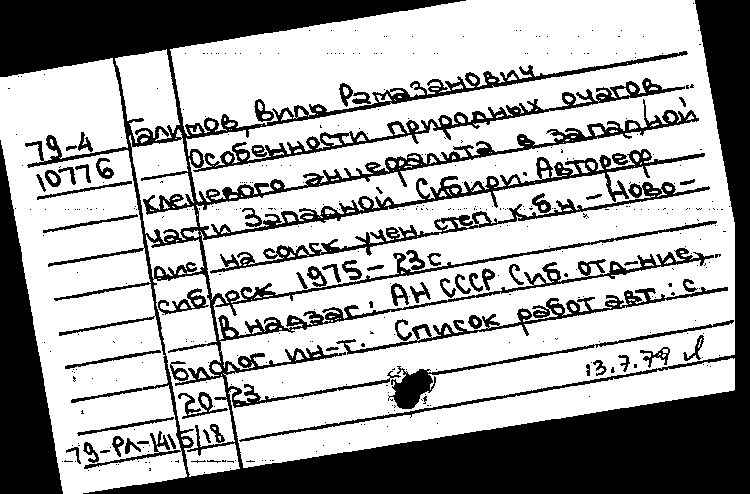 Галимов, Виль Рамазанович.
79-4 Особенности природных очагов
10776 клещевого энцефалита в западной
части Западной Сибири: Автореф.
дис. на соиск. учен. степ. к.б.н. – Ново-
сибирск, 1975 – 23 с.
В надзаг.: АН СССР. Сиб. отд-ние,
биолог. ин-т. Список работ авт.: с.
20-23.
13.7.79
79-РЛ-1415/18